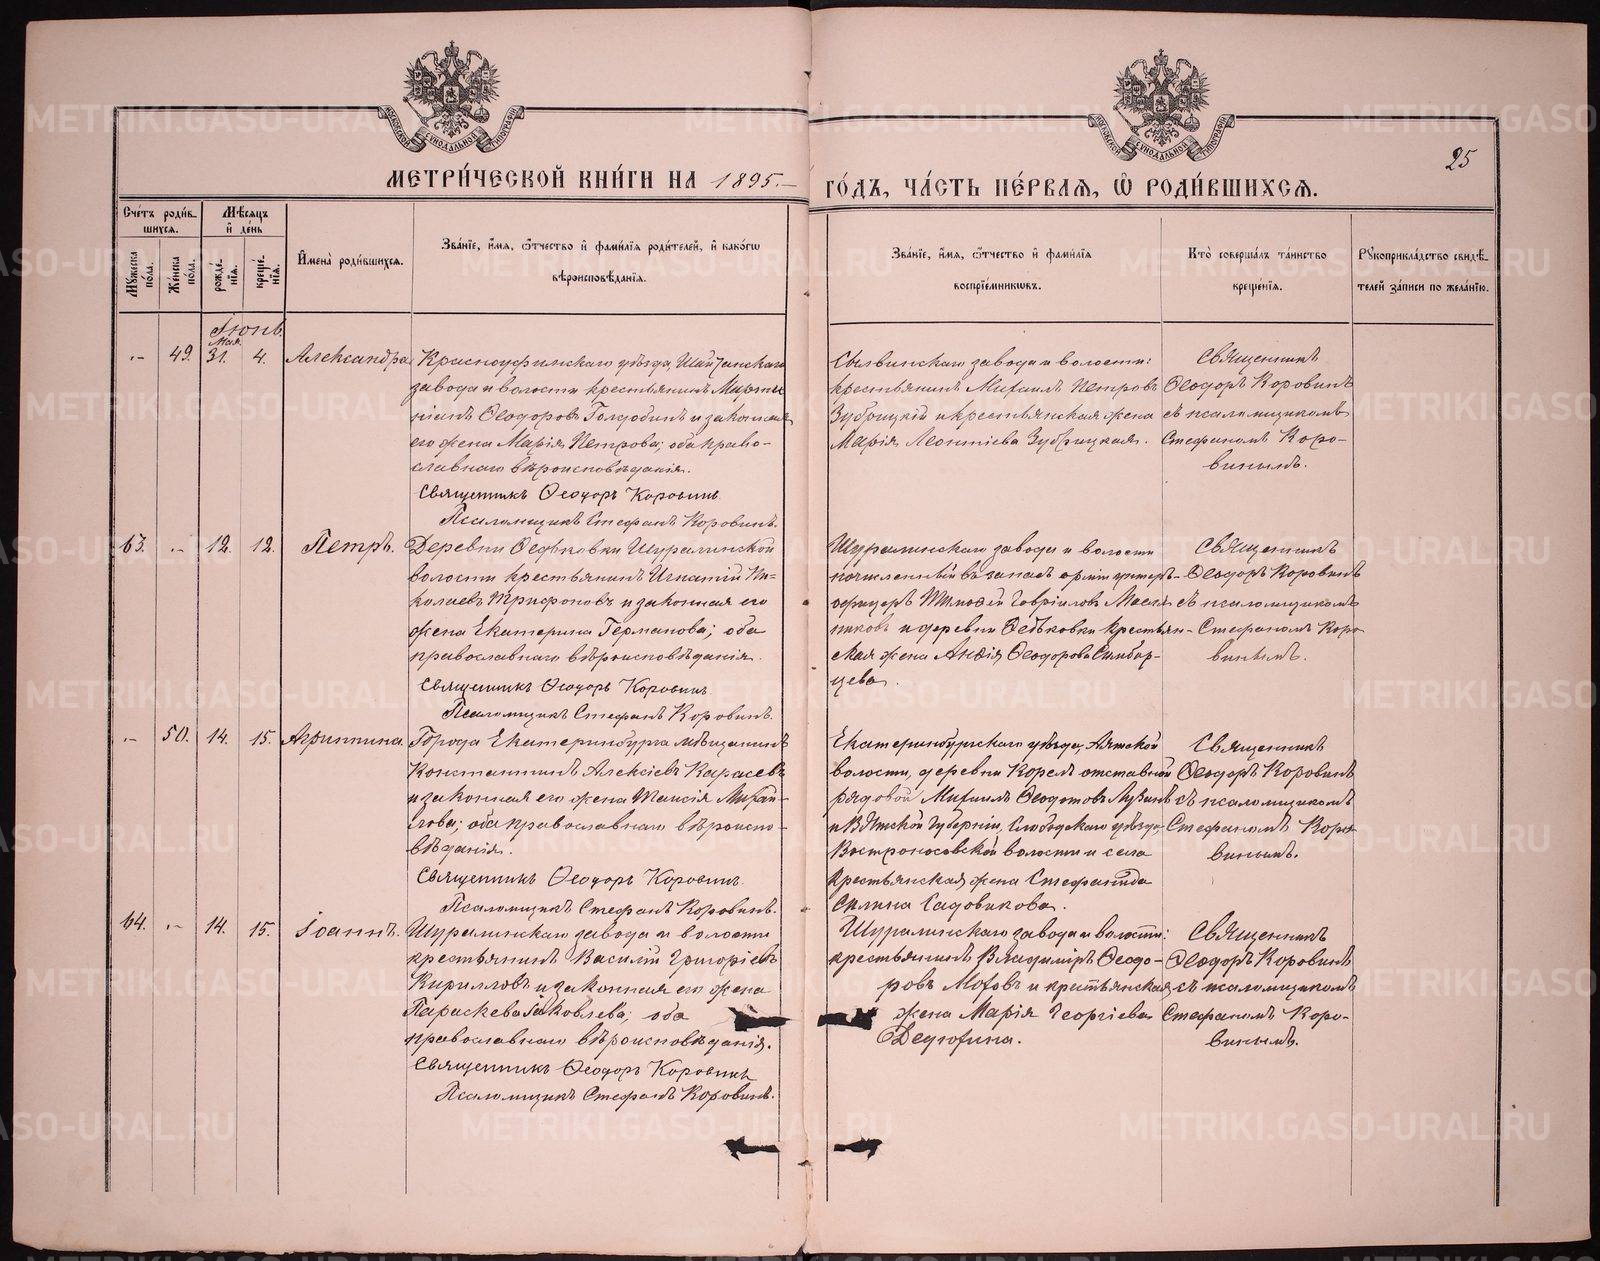 МЕТРИ́ЧЕСКОЙ КНИ́ГИ НА 1895.— ГО́ДЪ, ЧА́СТЬ ПЕ́РВАЯ, Ѽ РОДИ́ВШИХСЯ.
25
Сче́тъ роди́вшихся.
Му́жеска по́ла.
Же́нска по́ла.
Мѣ́сяцъ и де́нь
рожде́нїя.
креще́нїя.
Имена̀ роди́вшихся.
Зва́нїе, и́мя, ѻ҆́тчество и фами́лїя роди́телей, и како́гѡ
вѣроисповѣ́данїя.
Зва́нїе, и́мя, ѻ҆́тчество и фами́лїя
воспрїе́мниковъ.
Кто̀ соверша́лъ та́инство
креще́нїя.
Рꙋкоприкла́дство свидѣ́телей за́писи по жела́нїю.
Іюнь
Мая
— 49. 31. 4. Александра
Красноуфимскаго уѣзда, Шайтанскаго
завода и волости крестьянинъ Марти
ніанъ Ѳеодоровъ Голдобинъ и законная
его жена Марія Петрова; оба право-
славнаго вѣроисповѣданія.
Священникъ Ѳеодоръ Коровинъ
Псаломщикъ Стефанъ Коровинъ.
Сылвинскаго завода и волости:
крестьянинъ Михаилъ Петровъ
Зубрицкій и крестьянская жена
Марія Леонтіева Зубрицкая.
Священникъ
Ѳеодоръ Коровинъ
съ псаломщикомъ
Стефаномъ Коро-
винымъ.
63. — 12. 12. Петръ.
Деревни Ѳедьковки Шуралинской
волости крестьянинъ Игнатій Ни-
колаевъ Трифоновъ и законная его
жена Екатерина Германова; оба
православнаго вѣроисповѣданія.
Священникъ Ѳеодоръ Коровинъ
Псаломщикъ Стефанъ Коровинъ.
Шуралинскаго завода и волости
почисленный въ запасъ арміи унтеръ-
офицеръ Тимоѳей Гавріиловъ Маслен
никовъ и деревни Ѳедьковки крестьян-
ская жена Анѳія Ѳеодорова
цева.
Священникъ
Ѳеодоръ Коровинъ
съ псаломщикомъ
Стефаномъ Коро
винымъ.
— 50. 14. 15. Агриппина.
Города Екатеринбурга мѣщанинъ
Константинъ Алексіевъ Карасевъ
и законная его жена Таисія Михаи-
лова; оба православнаго вѣроиспо-
вѣданія.
Священникъ Ѳеодоръ Коровинъ
Псаломщикъ Стефанъ Коровинъ.
Екатеринбургскаго уѣзда, Аятской
волости, деревни Корелъ отставной
рядовой Михаилъ Ѳеодотовъ Лузинъ
и Вятской губерніи, Слободскаго уѣзда,
волости и села
крестьянская жена Стефанида
Силина Садовикова.
Священникъ
Ѳеодоръ Коровинъ
съ псаломщикомъ
Стефаномъ Коро
винымъ.
64. — 14. 15. Іоаннъ.
Шуралинскаго завода и волости
крестьянинъ Василій Григоріевъ
Кирилловъ и законная его жена
Параскева Іаковлева; оба
православнаго вѣроисповѣданія.
Священникъ Ѳеодоръ Коровинъ
Псаломщикъ Стефанъ Коровинъ.
Шуралинскаго завода и волости:
крестьянинъ Владиміръ Ѳеодо-
ровъ Моховъ и крестьянская
жена Марія Георгіева
Дедюхина.
Священникъ
Ѳеодоръ Коровинъ
съ псаломщикомъ
Стефаномъ Коро-
винымъ.